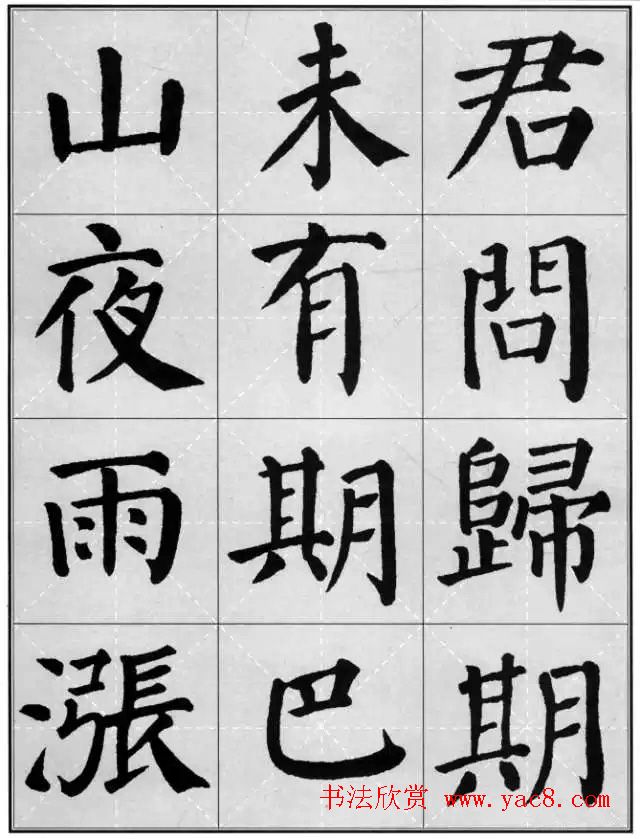 君問歸期
未有期巴
山夜雨漲
书法欣赏 www.yac8.com